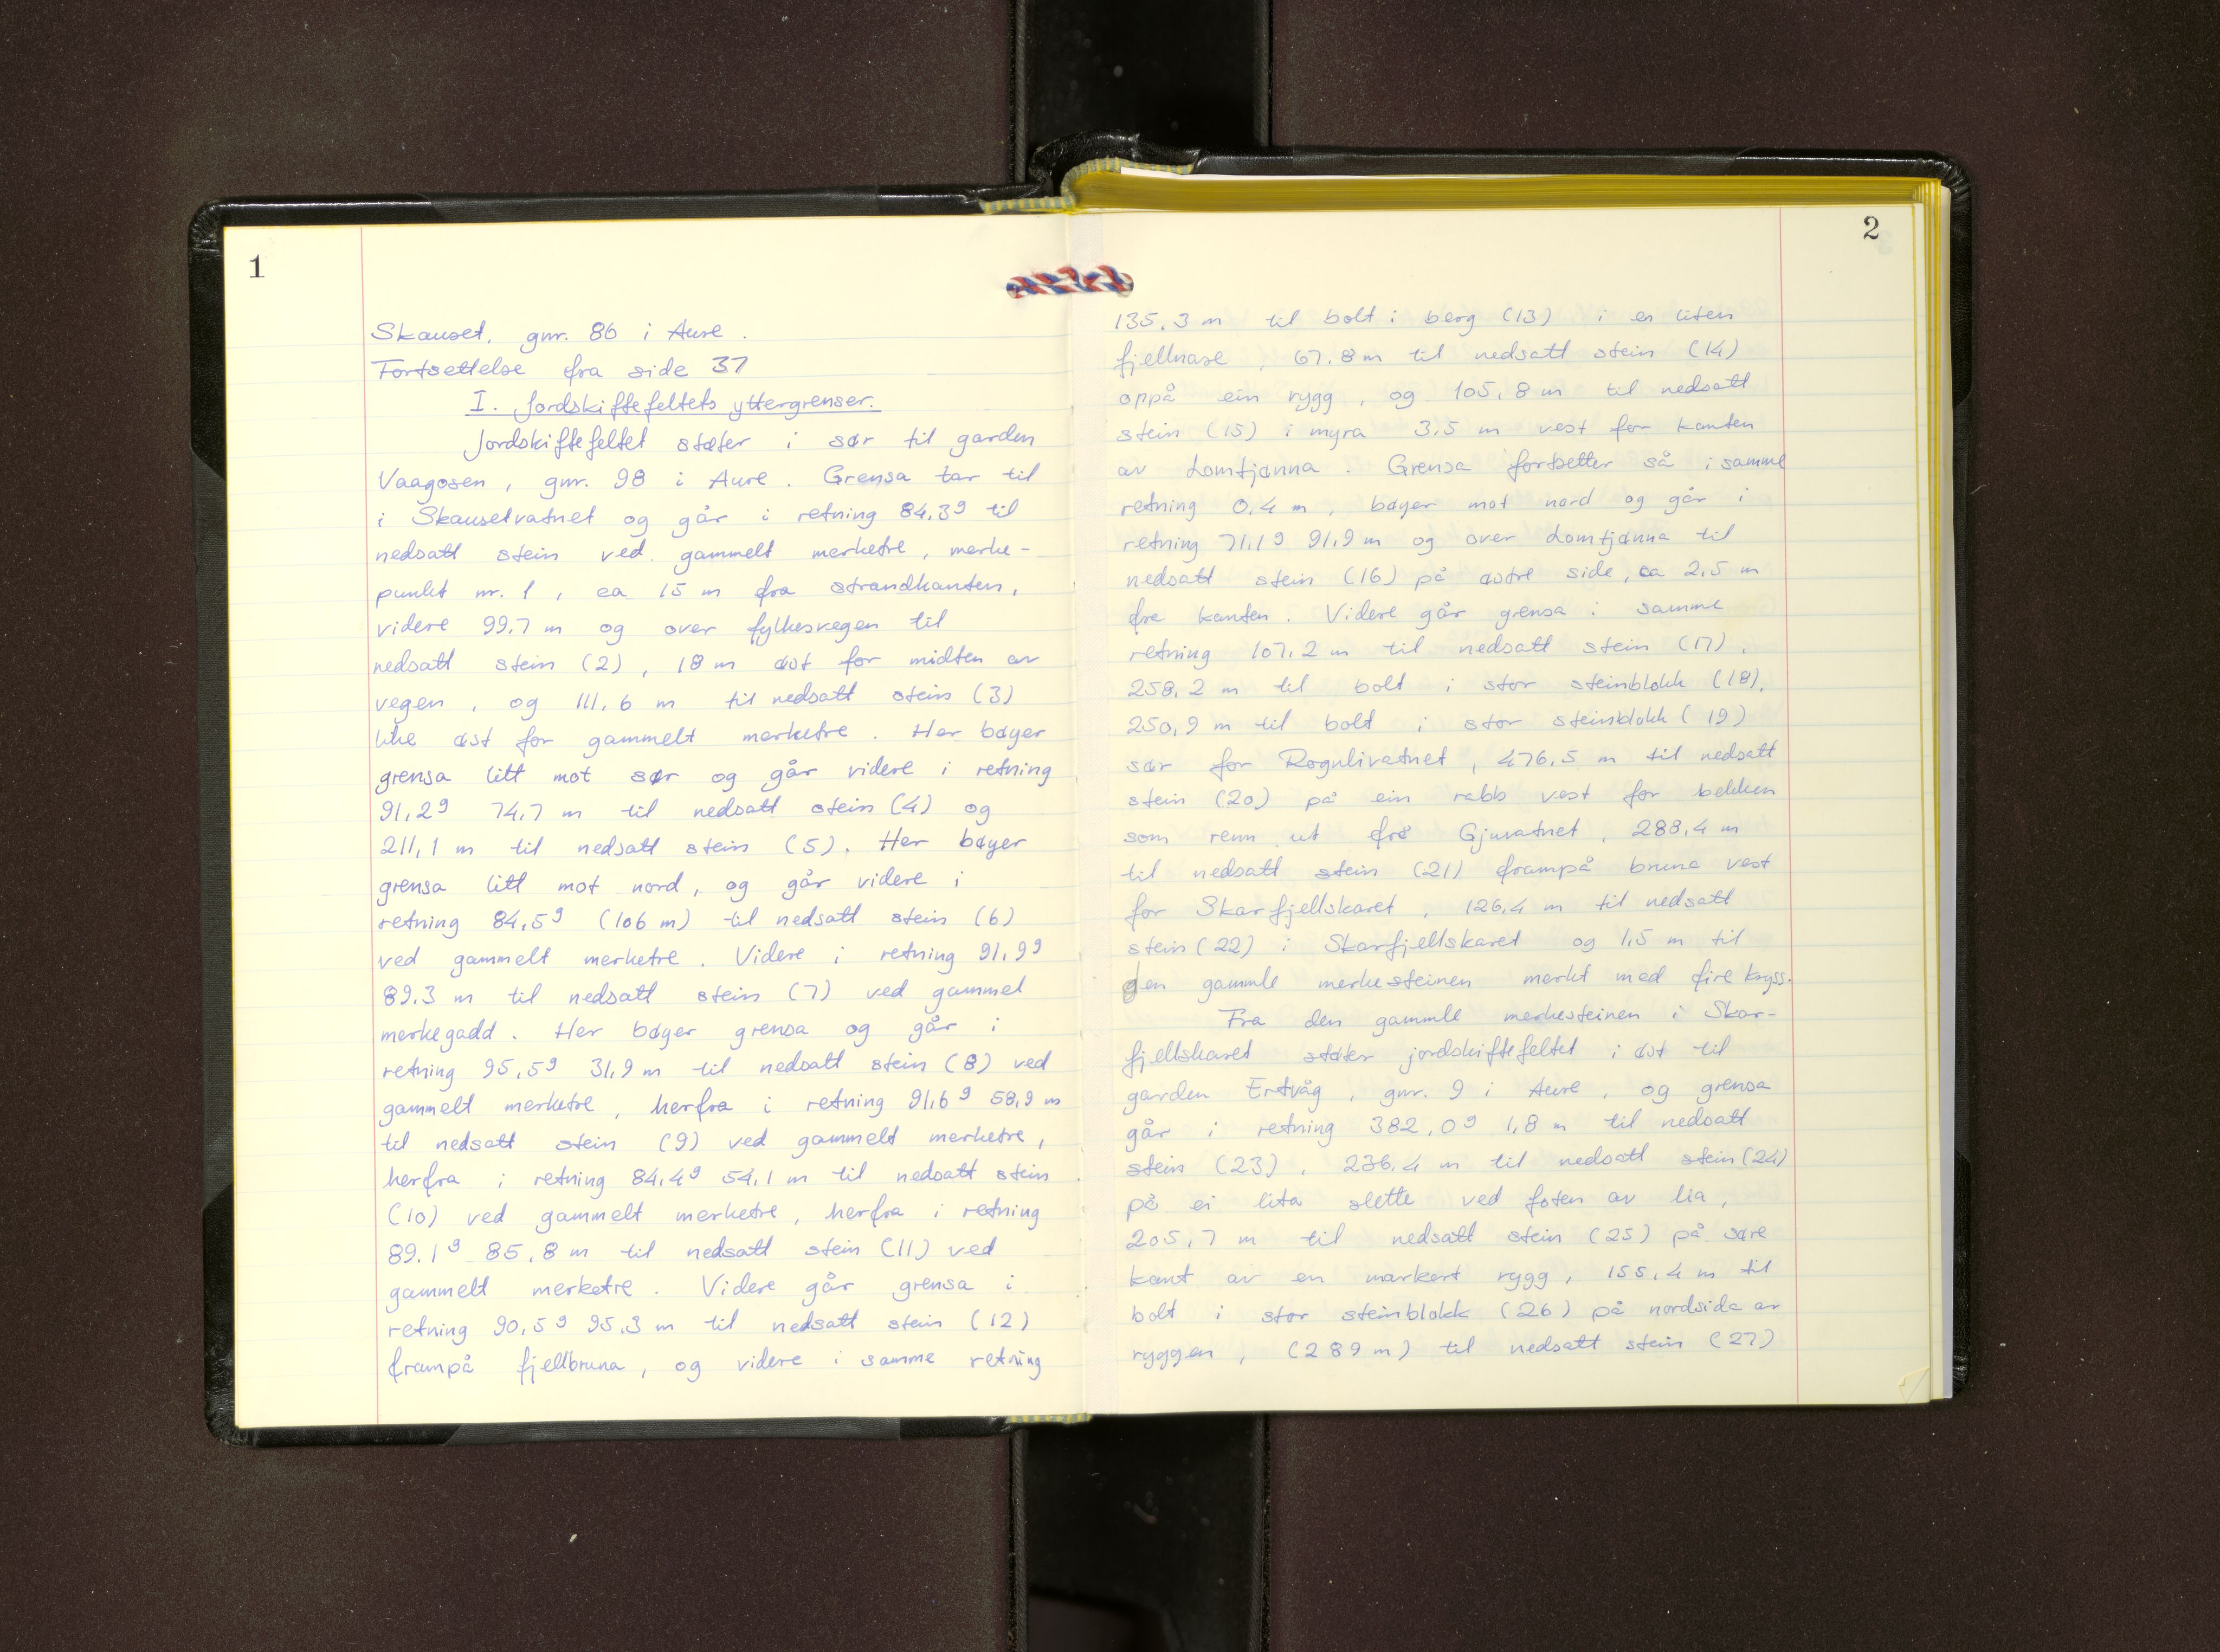 1
Skauset, gnr. 86 i Aure.
Fortsettelse fra side 37
I. Jordskiftefeltets yttergrenser.
Jordskiftefeltet støter i sør til garden
Vaagosen, gnr. 98 i Aure. Grensa tar til
i Skausetvatnet og går i retning 84,3ᵍ til
nedsatt stein ved gammelt merketre, merke-
punkt nr. 1, ca 15 m fra strandkanten,
videre 99,7 m og over fylkesvegen til
nedsatt stein (2), 18 m øst for midten av
vegen, og 111,6 m til nedsatt stein (3)
like øst for gammelt merketre. Her bøyer
grensa litt mot sør og går videre i retning
91,2ᵍ 74,7 m til nedsatt stein (4) og
211,1 m til nedsatt stein (5). Her bøyer
grensa litt mot nord, og går videre i
retning 84,5ᵍ (106 m) til nedsatt stein (6)
ved gammelt merketre. Videre i retning 91,9ᵍ
89,3 m til nedsatt stein (7) ved gammel
merkegadd. Her bøyer grensa og går i
retning 95,5ᵍ 31,9 m til nedsatt stein (8) ved
gammelt merketre, herfra i retning 91,6ᵍ 58,9 m
til nedsatt stein (9) ved gammelt merketre,
herfra i retning 84,4ᵍ 54,1 m til nedsatt stein
(10) ved gammelt merketre, herfra i retning
89,1ᵍ 85,8 m til nedsatt stein (11) ved
gammelt merketre. Videre går grensa i
retning 90,5ᵍ 95,3 m til nedsatt stein (12)
frampå fjellbruna, og videre i samme retning
2
135,3 m til bolt i berg (13) i en liten
fjellnase, 67,8 m til nedsatt stein (14)
oppå ein rygg, og 105,8 m til nedsatt
stein (15) i myra 3,5 m vest for kanten
av Lomtjønna. Grensa fortsetter så i samme
retning 0,4 m, bøyer mot nord og går i
retning 71,1ᵍ 91,9 m og over Lomtjønna til
nedsatt stein (16) på østre side, ca 2,5 m
fra kanten. Videre går grensa i samme
retning 107,2 m til nedsatt stein (17),
258,2 m til bolt i stor steinblokk (18),
250,9 m til bolt i stor steinblokk (19)
sør for Rognlivatnet, 476,5 m til nedsatt
stein (20) på ein rabb vest for bekken
som renn ut frå Gjuvatnet, 288,4 m
til nedsatt stein (21) frampå bruna vest
for Skarfjellskaret, 126,4 m til nedsatt
stein (22) i Skarfjellskaret og 1,5 m til
den gammle merkesteinen merkt med fire kryss.
Fra den gammle merkesteinen i Skar-
fjellskaret støter jordskiftefeltet i øst til
garden Ertvåg, gnr. 9 i Aure, og grensa
går i retning 382,0ᵍ 1,8 m til nedsatt
stein (23), 236,4 m til nedsatt stein (24)
på ei lita slette ved foten av lia,
205,7 m til nedsatt stein (25) på søre
kant av en markert rygg, 155,4 m til
bolt i stor steinblokk (26) på nordsida av
ryggen, (289 m) til nedsatt stein (27)